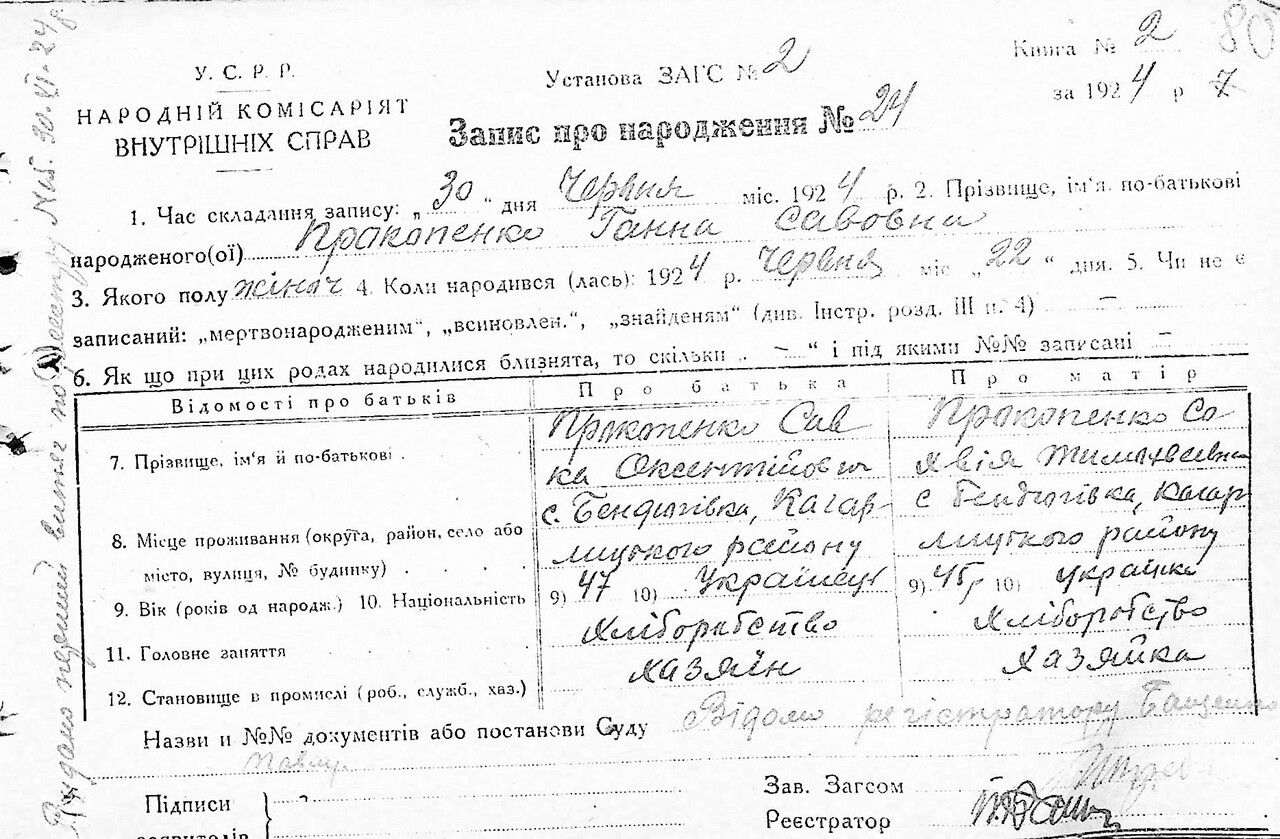 Книга № 2 80
за 1924 р 7
У. С. Р. Р.
НАРОДНІЙ КОМІСАРІЯТ
ВНУТРІШНІХ СПРАВ
Установа ЗАГС № 2
Запис про народження № 24
1. Час складання запису: „ 30 “ дня Червня міс. 1924 р. 2. Прізвище, ім'я, по-батькові
народженого(ої) Прокопенко Ганна Савовна
3. Якого полу жіноч 4. Коли народився (лась): 1924 р. Червня міс „ 22 “ дня. 5. Чи не є
записаний: „мертвонародженим“, „всиновлен.“, „знайденям“ (див. Інстр. розд. III п. 4) —
6. Як що при цих родах народилися близнята, то скільки „ — “ і під якими №№ записані —
Відомості про батьків Про батька Про матір
7. Прізвище, ім'я й по-батькові Прокопенко Сав Прокопенко Со
ка Оксентійович хвія
8. Місце проживання (округа, район, село або с. Бендюгівка, Кагар- с Бендюгівка, Кагар
місто, вулиця, № будинку) лицького району лицького району
9. Вік (років од народж.) 10. Національність 9) 47 10) Українець 9) 45 10) українка
11. Головне заняття Хліборобство Хліборобство
12. Становище в промислі (роб., служб., хаз.) Хазяїн Хазяйка
Назви и №№ документів або постанови Суду Відомо регістратору Бащенко
Павлу
Підписи
заявителів
Зав. Загсом
Реєстратор
Видано перший витяг по №15 30-VI-24 р